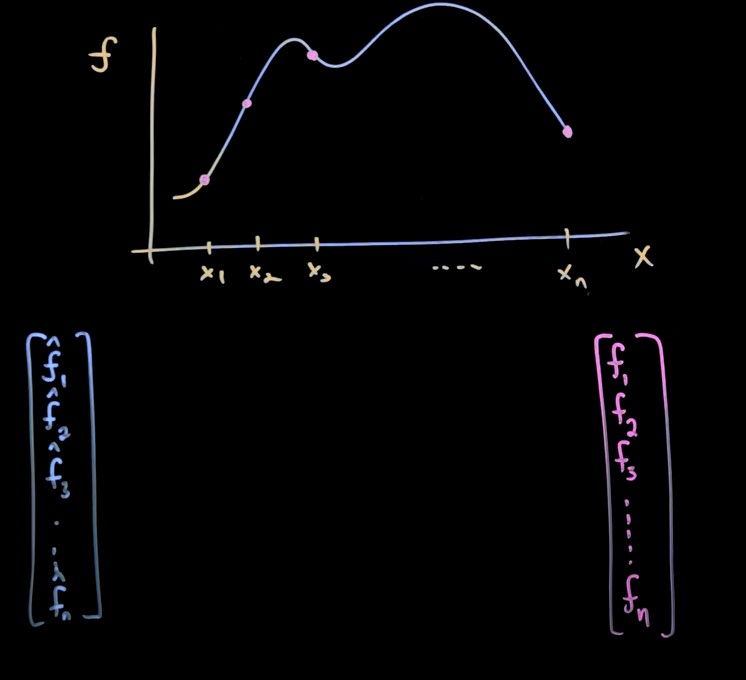 f
x₁ x₂ x₃ ..... xₙ x
f̂₁
f̂₂
f̂₃
...
f̂ₙ
f₁
f₂
f₃
......
fₙ